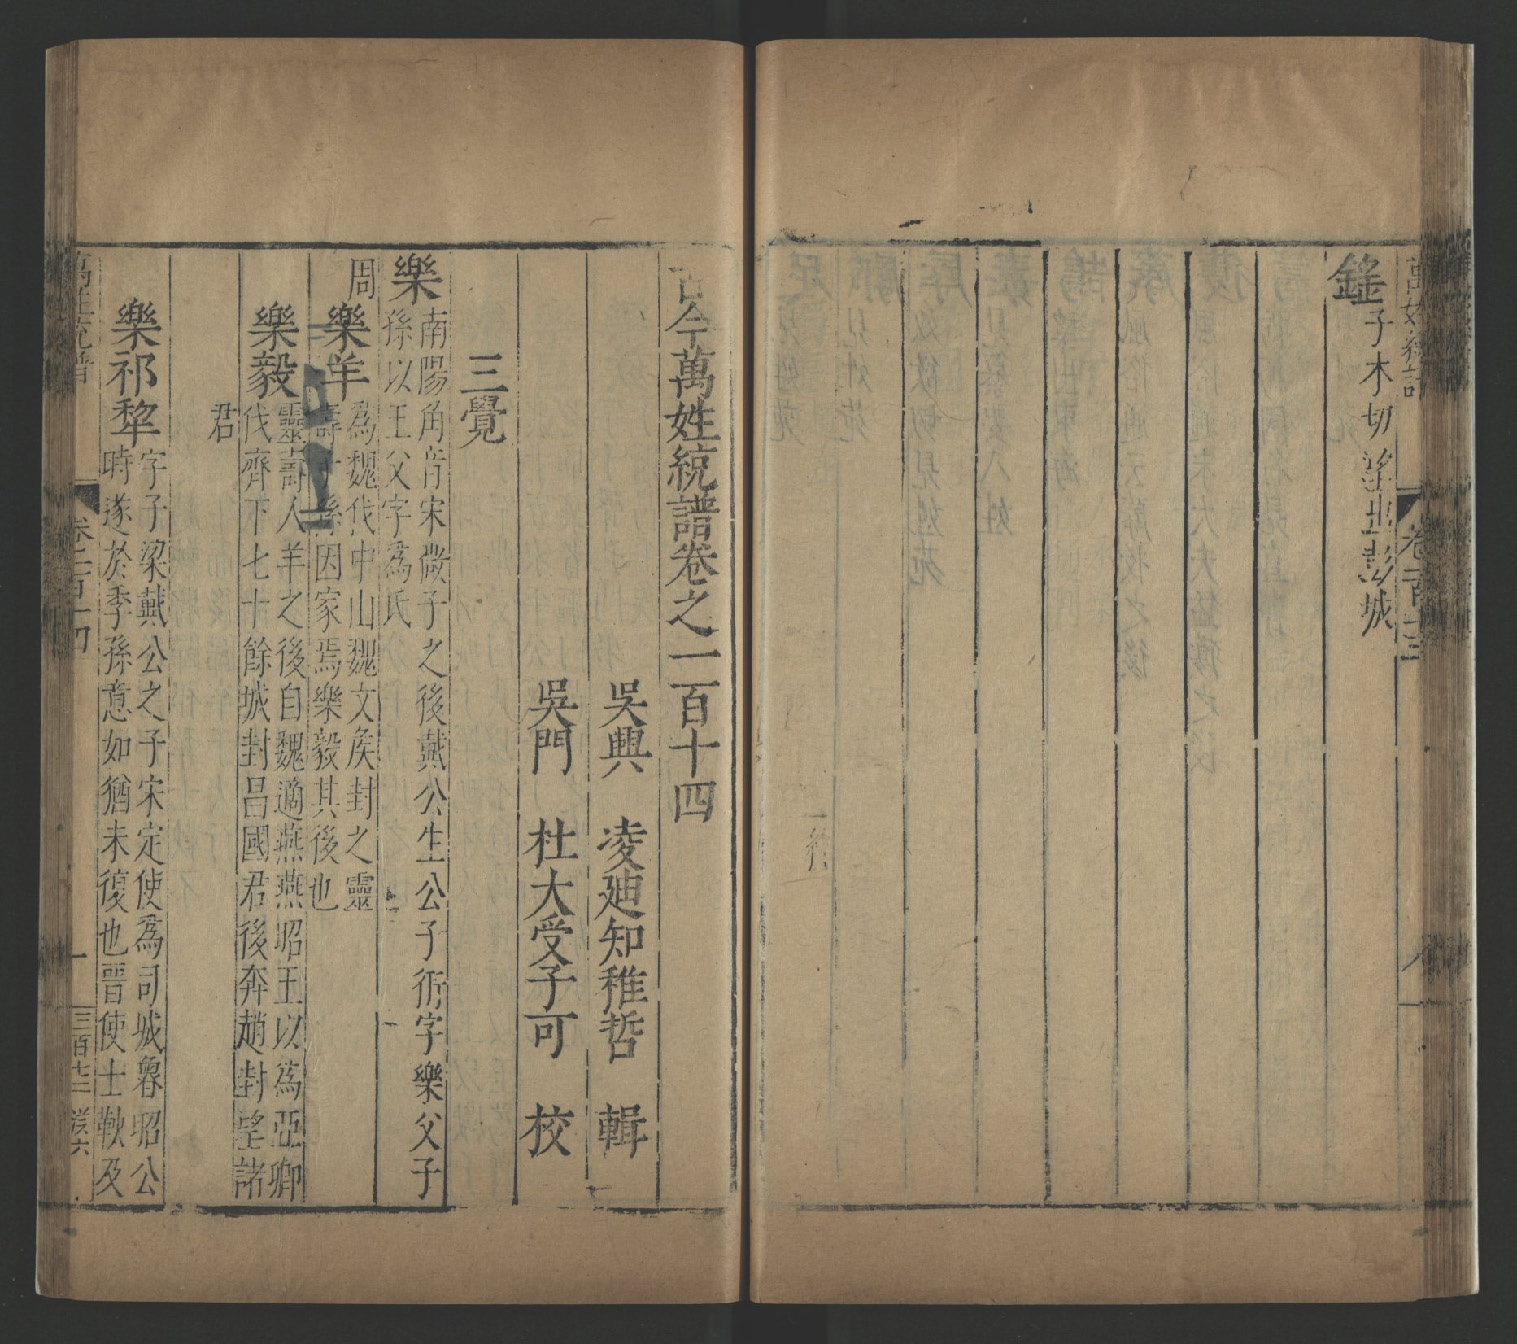 鍂
子木切望出彭城
古今萬姓統譜卷之一百十四
吳興 凌迪知稚哲 輯
吳門 杜大受子可 校
三覺
樂
南陽角音宋微子之後戴公生公子衎字樂父子
孫以王父字為氏
周
樂羊
為魏伐中山魏文矦封之靈
壽子孫因家焉樂毅其後也
樂毅
靈壽人羊之後自魏適燕燕昭王以為亞卿
伐齊下七十餘城封昌國君後奔趙封望諸
君
樂祁犂
字子梁戴公之子宋定使為司城魯昭公
時遂於季孫意如猶未復也晉使士鞅及
萬姓統譜
卷一百十四
一